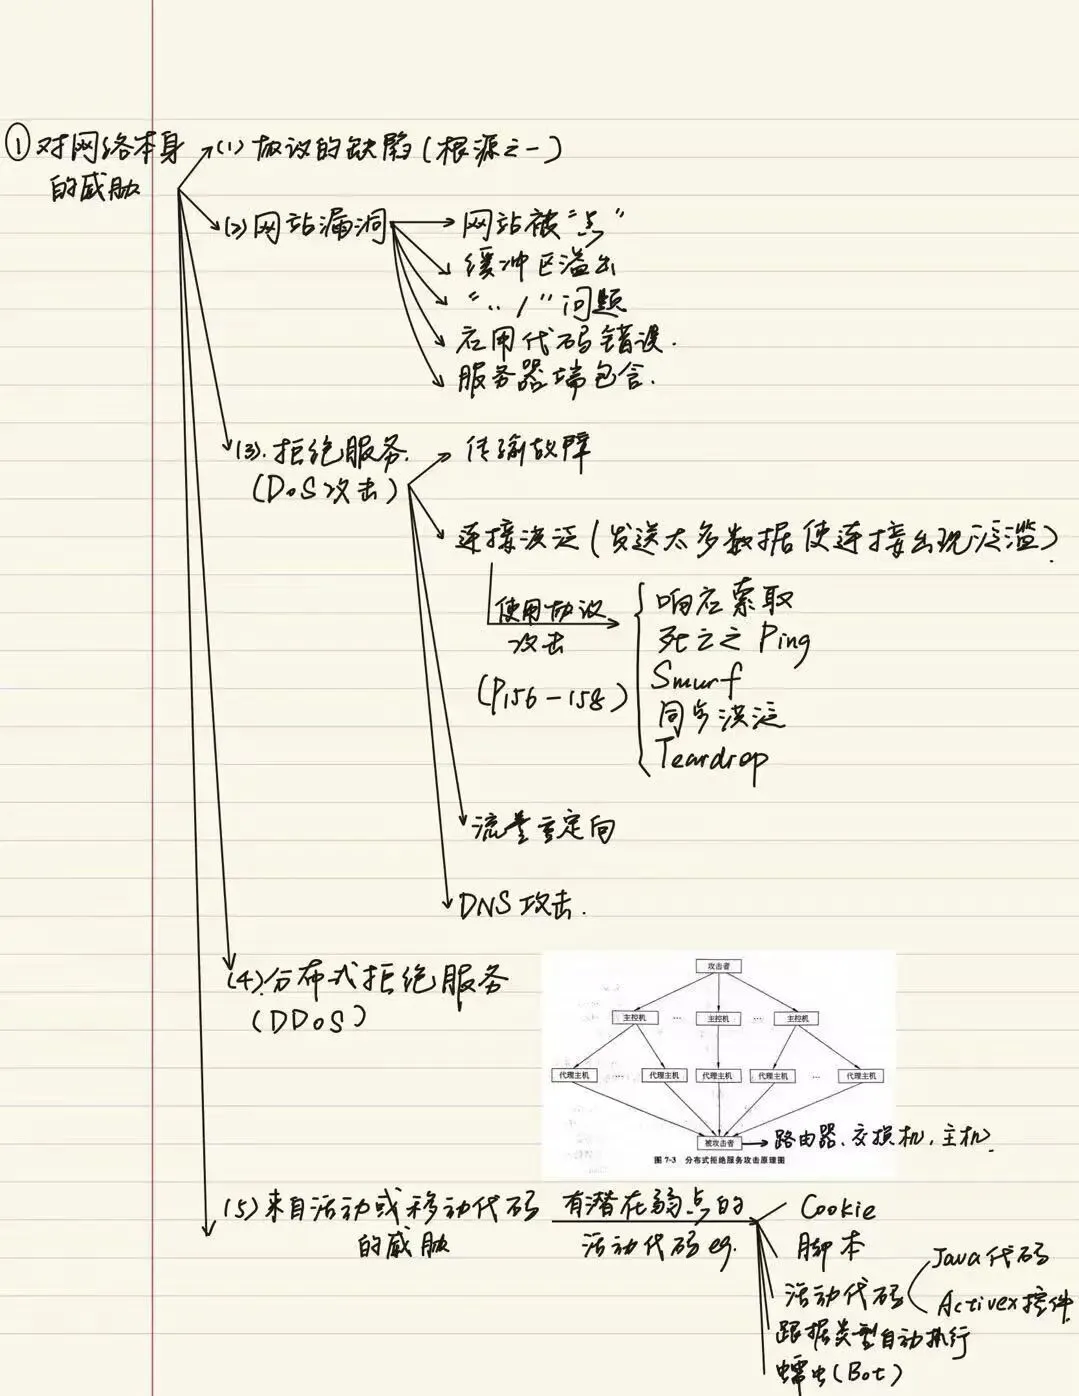 ①对网络本身
的威胁
(1) 协议的缺陷(根源之一)
(2)网站漏洞
网站被“黑”
缓冲区溢出
“../”问题
应用代码错误.
服务器端包含.
(3).拒绝服务.
(DoS攻击)
传输故障
连接洪泛(发送太多数据使连接出现泛滥).
使用协议
攻击
(P156-158)
响应索取
死亡之Ping
Smurf
同步洪泛
Teardrop
流量重定向
DNS攻击.
(4).分布式拒绝服务
(DDoS)
攻击者
主控机 … 主控机 … 主控机
代理主机 … 代理主机 代理主机 代理主机 … 代理主机
被攻击者
路由器、交换机、主机.
图 7-3 分布式拒绝服务攻击原理图
(5)来自活动或移动代码
的威胁
有潜在弱点的
活动代码 eg.
Cookie
脚本
活动代码
Java代码
Activex控件
跟据类型自动执行
蠕虫(Bot)